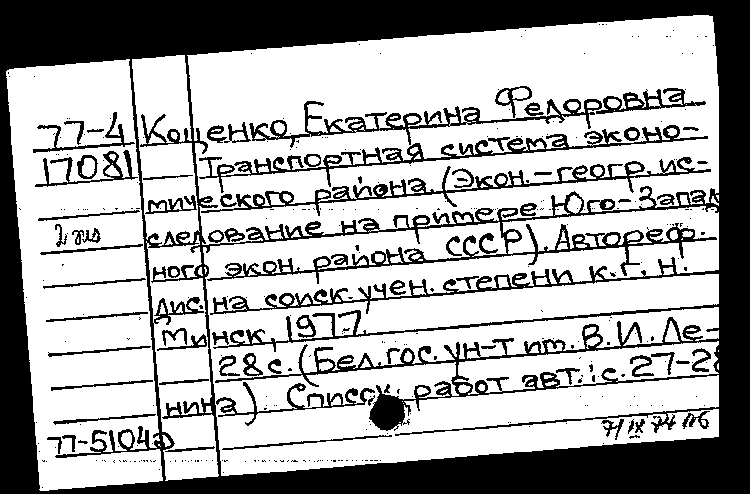 77-4 Кощенко, Екатерина Федоровна
17081 Транспортная система эконо-
мического района. (Экон.-геогр. ис-
2 экз следование на примере Юго-Запад
ного экон. района СССР). Автореф.
дис. на соиск. учен. степени к.г.н.
Минск, 1977.
28 с. (Бел. гос. ун-т им. В.И. Ле-
нина). Список работ авт.: с. 27-28
77-5104а